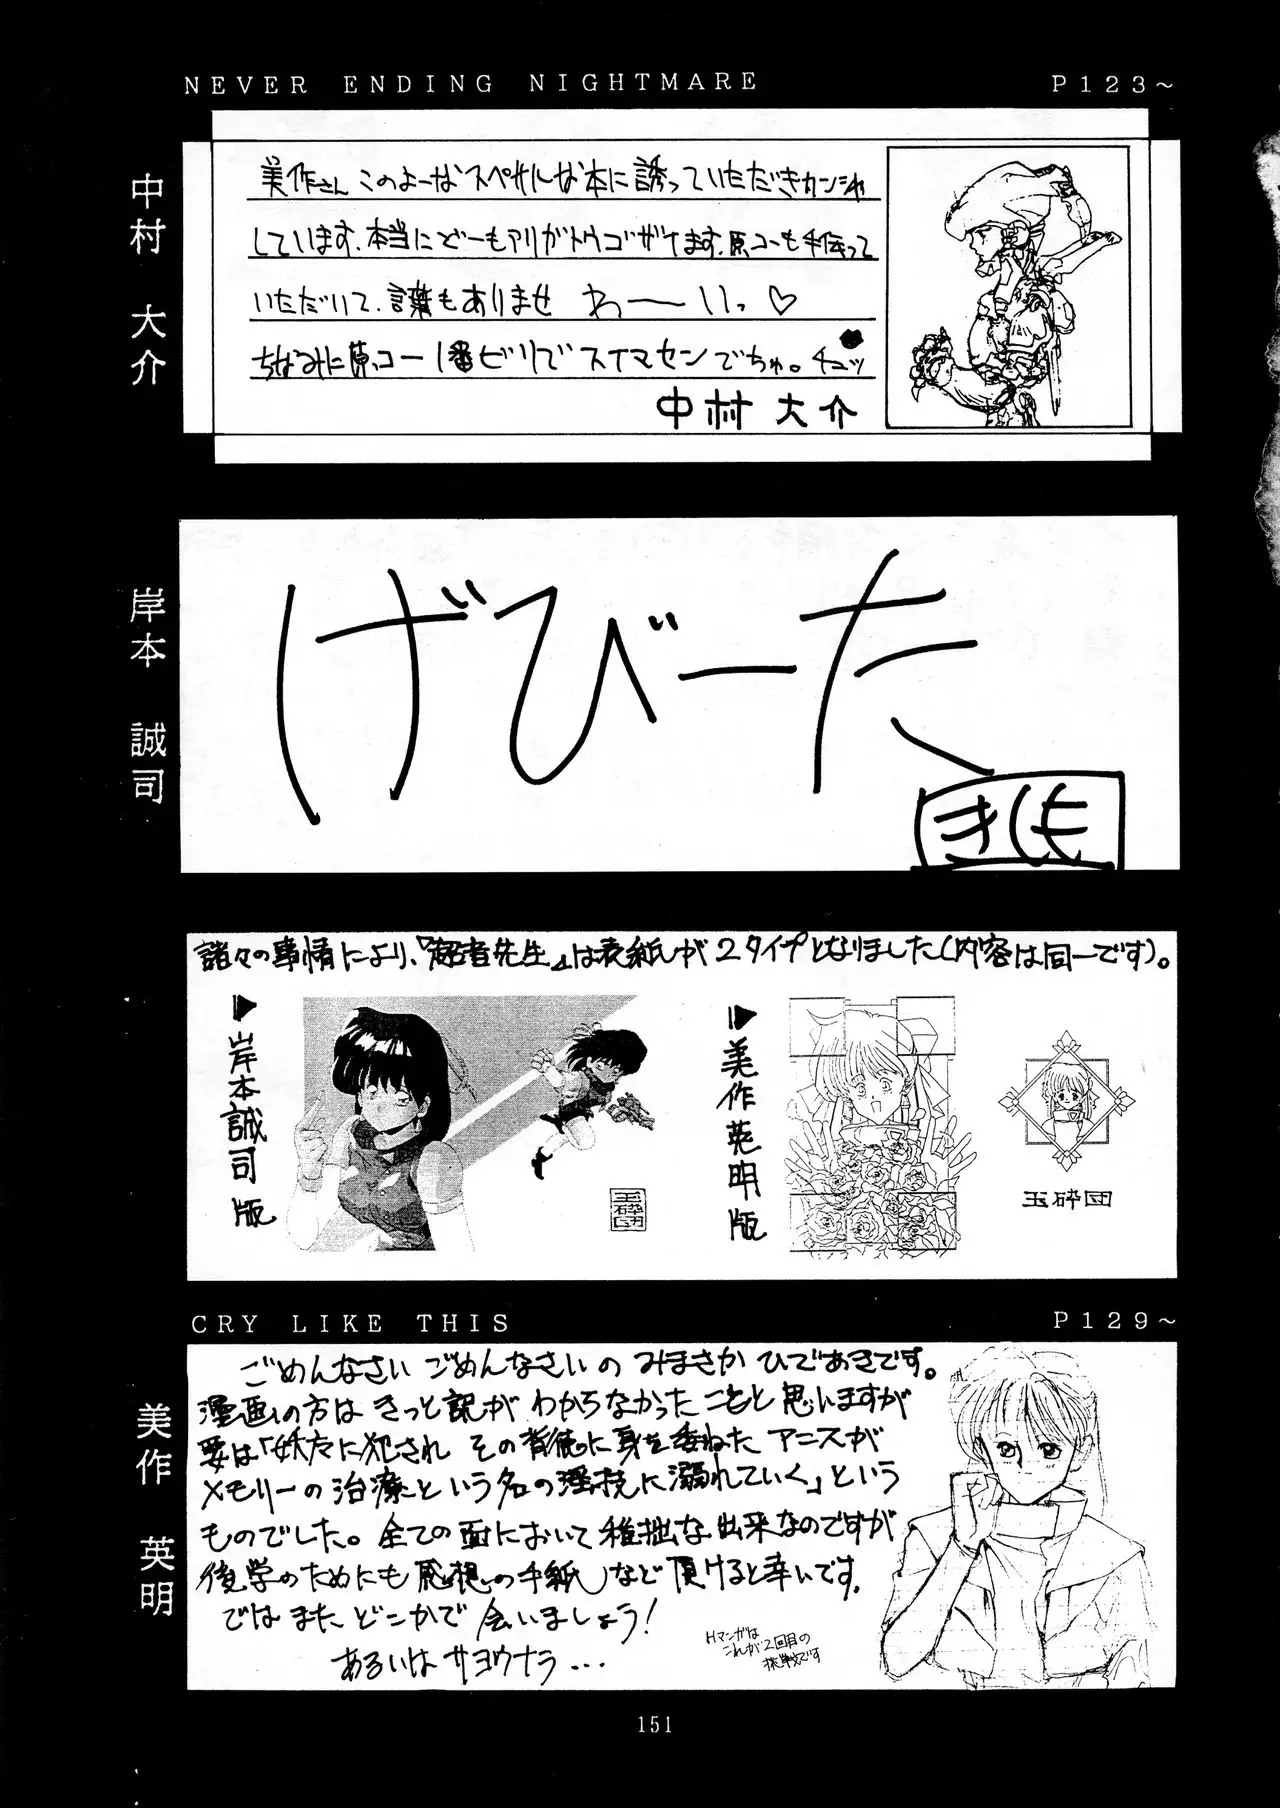 NEVER ENDING NIGHTMARE P123～
中村 大介
美作さん このよーな スペサルな本に誘っていただきカンシャ
しています.本当にどーもアリガトウゴザイます.原コーも手伝って
いただいて.言葉もありませ わーーいっ♡
ちなみに原コー1番ビリでスイマセンでちゅ。チュッ
中村 大介
岸本 誠司
げびーた
きしも
諸々の事情により、『
先生』は表紙が2タイプとなりました(内容は同一です)。
▶岸本誠司版
玉砕団
▶美作英明版
玉砕団
CRY LIKE THIS P129～
美作 英明
ごめんなさい ごめんなさい の みまさか ひであきです。
漫画の方は きっと訳が わからなかった ことと 思いますが
要は「妖応に犯され その背徳に身を委ねた アニスが
メモリーの治療という名の淫技に溺れていく」という
ものでした。全ての面において稚拙な出来なのですが
後学のためにも感想の手紙など頂けると幸いです.
では また どこかで 会いましょう!
あるいは サヨウナラ...
Hマンガは
これが2回目の
挑戦です
151